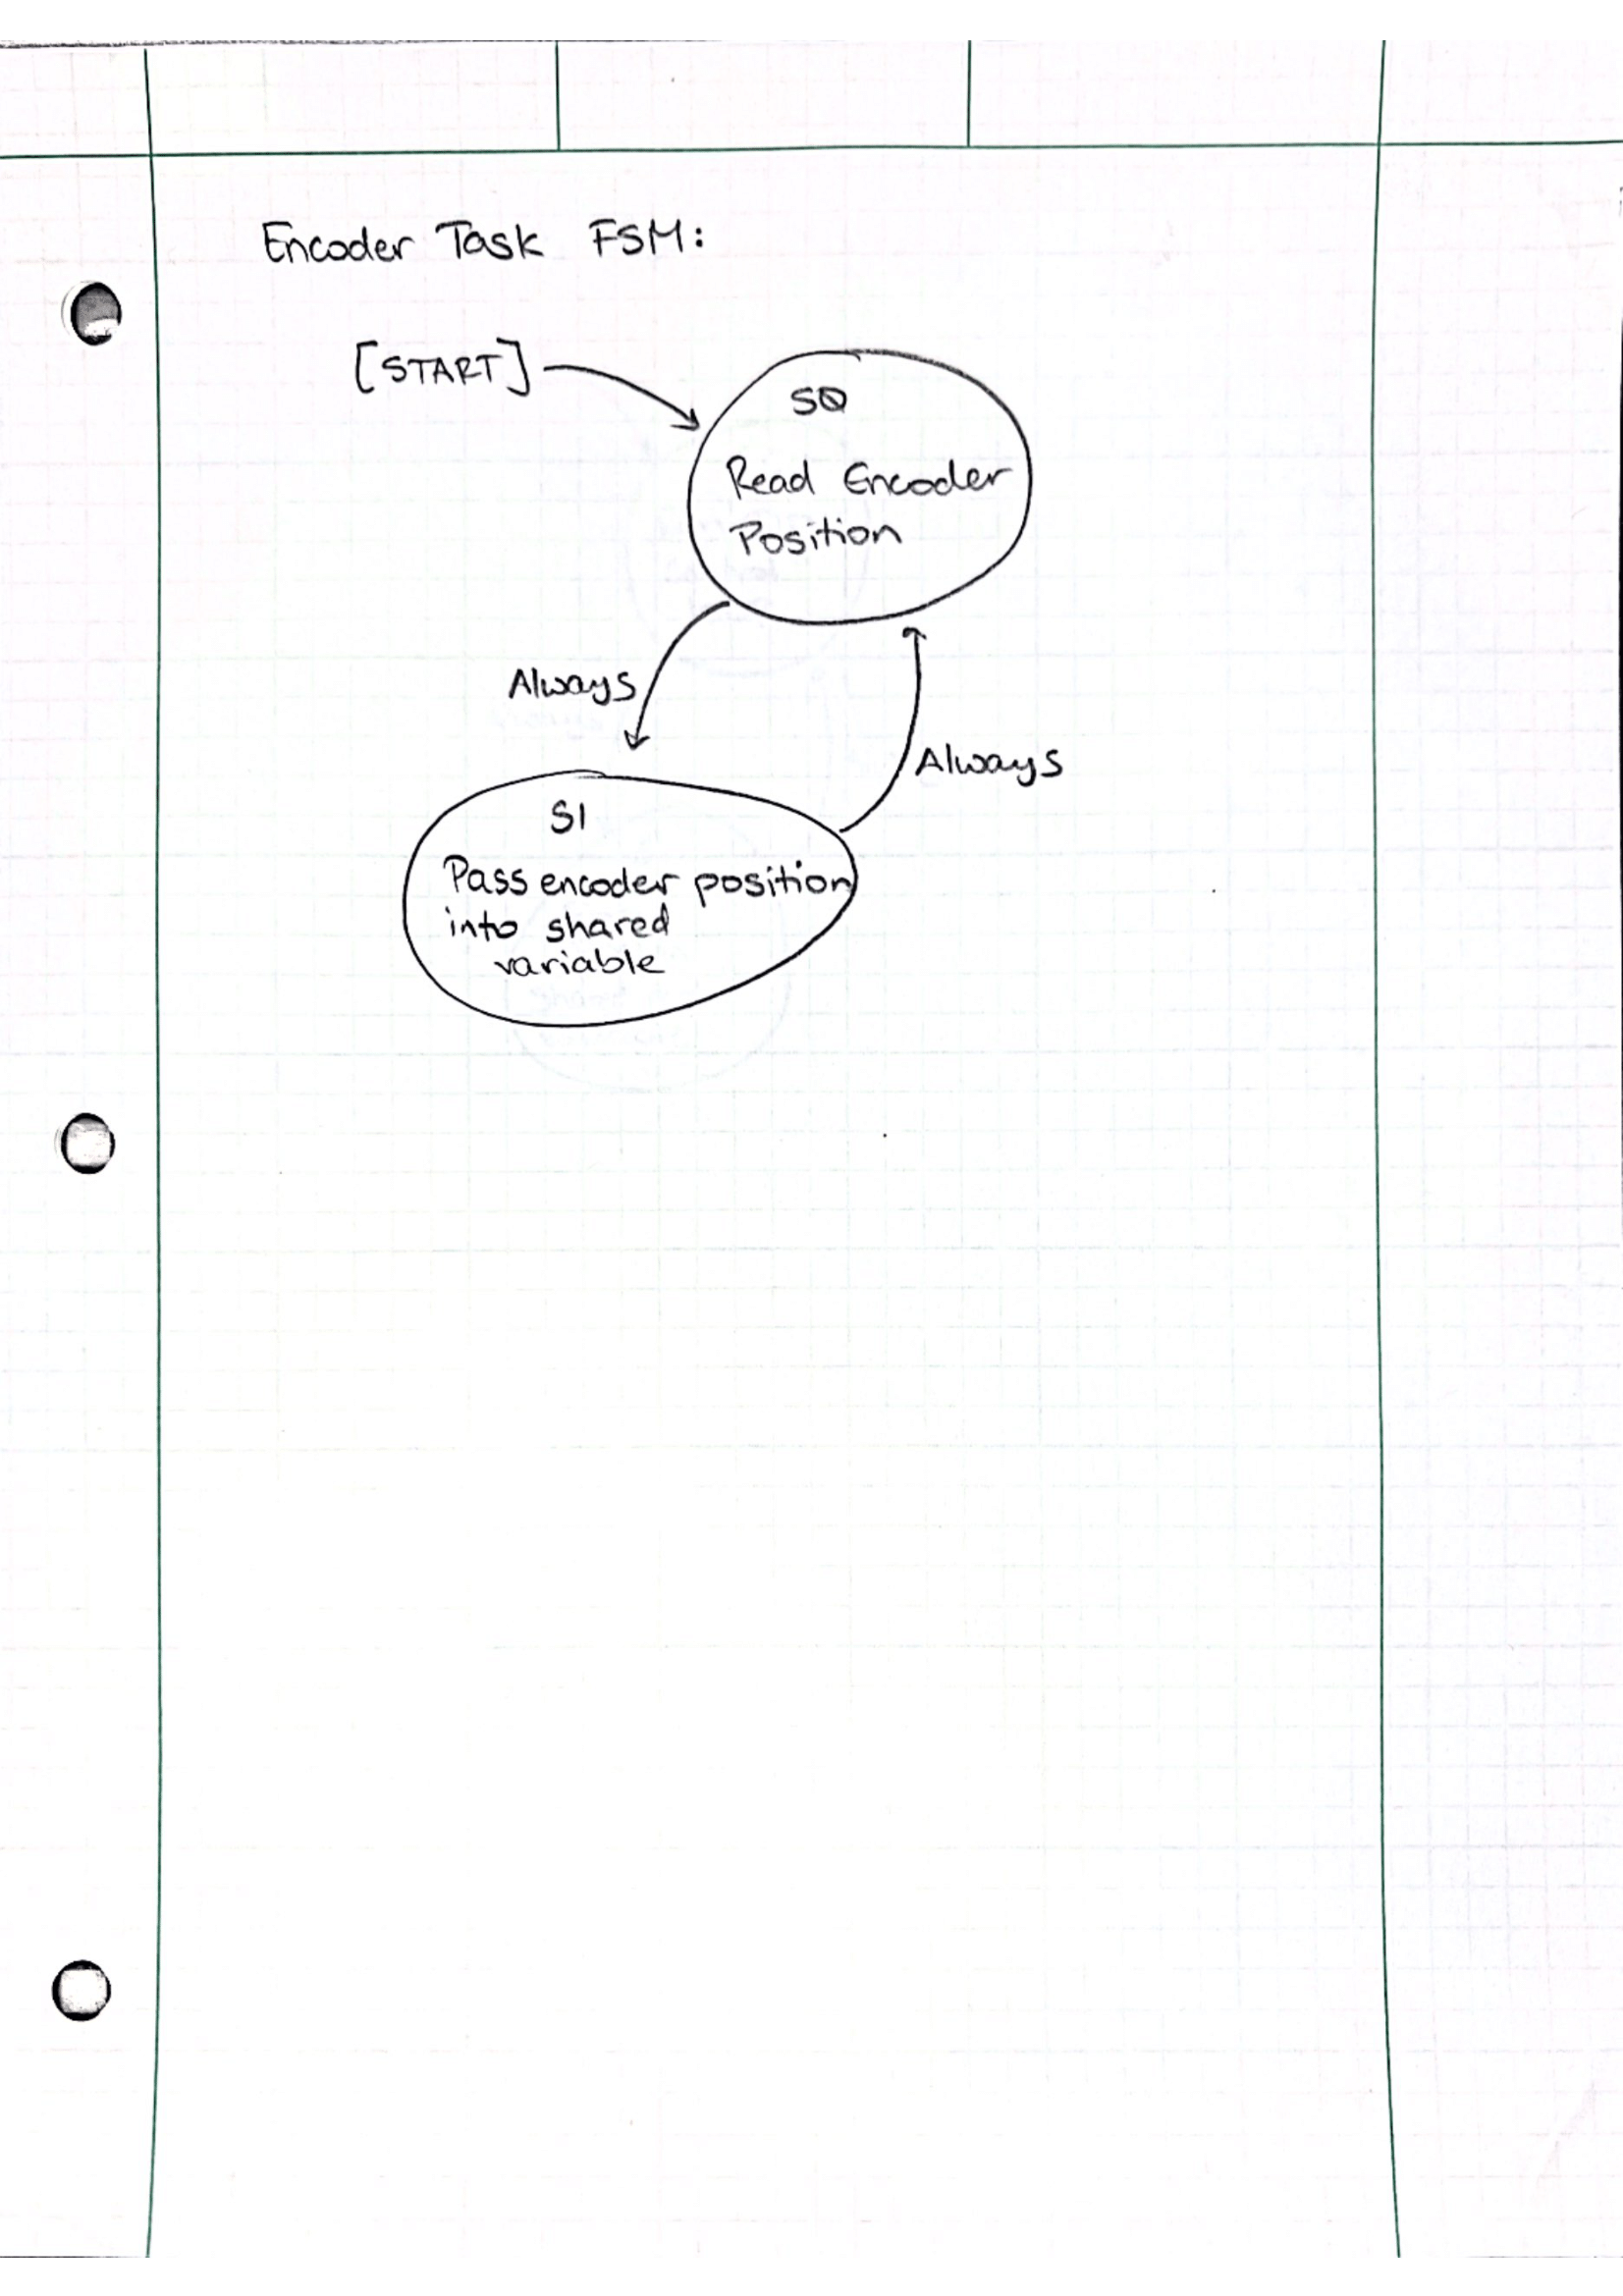 Encoder Task FSM:
[START]
S0
Read Encoder
Position
Always
Always
S1
Pass encoder position
into shared
variable